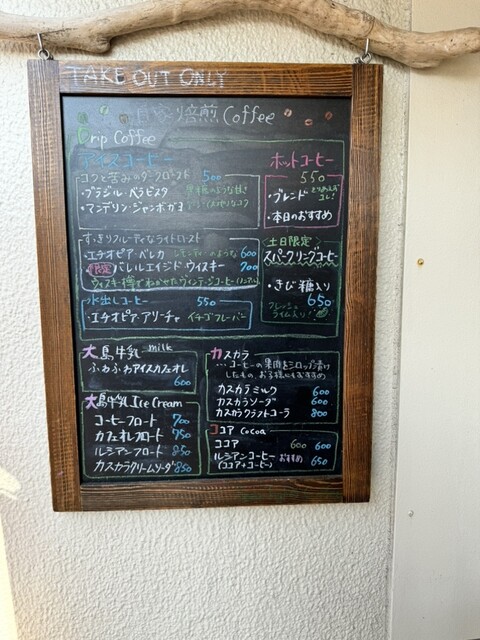 TAKE OUT ONLY
自家焙煎 Coffee
Drip Coffee
アイスコーヒー
コクと苦みのダークロースト 500
・ブラジル・ベラビスタ
・マンデリン・ジャンボガヨ
ホットコーヒー
550
・ブレンド
・本日のおすすめ
すっきりフルーティなライトロースト
・エチオピア・ベレカ レモンティーのような 600
限定 バレルエイジド ウイスキー 700
土日限定
スパークリングコーヒー
・きび糖入り
650
フレッシュ
ライム入り!
水出しコーヒー 550
・エチオピア・アリーチャ イチゴフレーバー
大島牛乳 milk
ふわふわアイスカフェオレ
600
カスカラ
...コーヒーの果肉をシロップ漬け
したもの。お子様にもおすすめ
カスカラミルク 600
カスカラソーダ 600
カスカラクラフトコーラ 800
大島牛乳 Ice Cream
コーヒーフロート 700
カフェオレフロート 750
ルシアンフロート 850
カスカラクリームソーダ 850
ココア cocoa
ココア 600 600
ルシアンコーヒー おすすめ 650
(ココア+コーヒー)